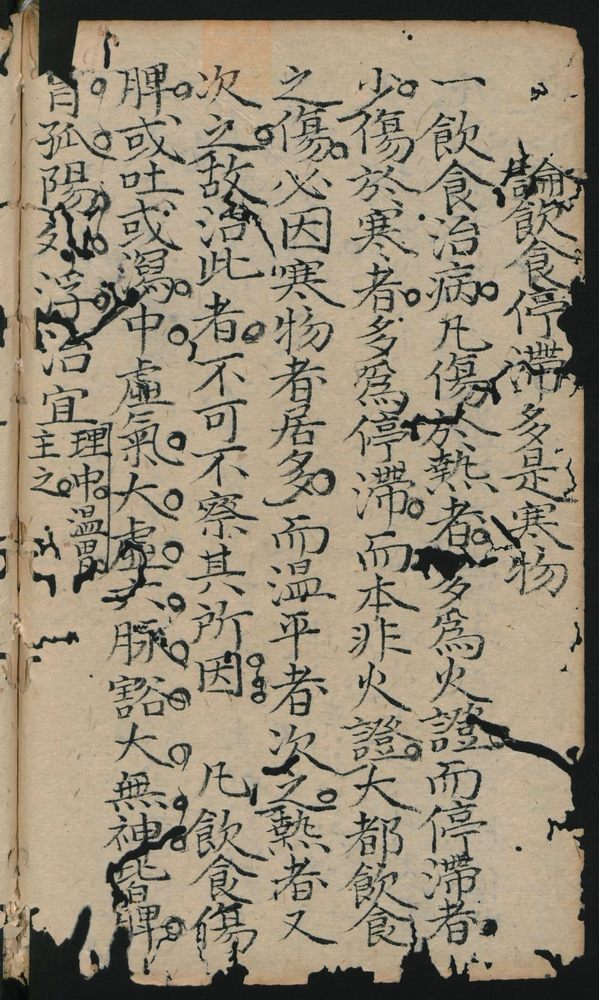 論飲食停滯多是寒物
一飲食治病。凡傷於熱者。多爲火證。而停滯者
少。傷於寒者。多爲停滯。而本非火證。大都飲食
之傷。必因寒物者居多。而温平者次之。熱者又
次之。故治此者。不可不察其所因。凡飲食傷
脾。或吐或瀉。中虛氣。大虛。六脉豁。大無神。皆脾。
孤陽外浮。治宜理中。温胃
主之。